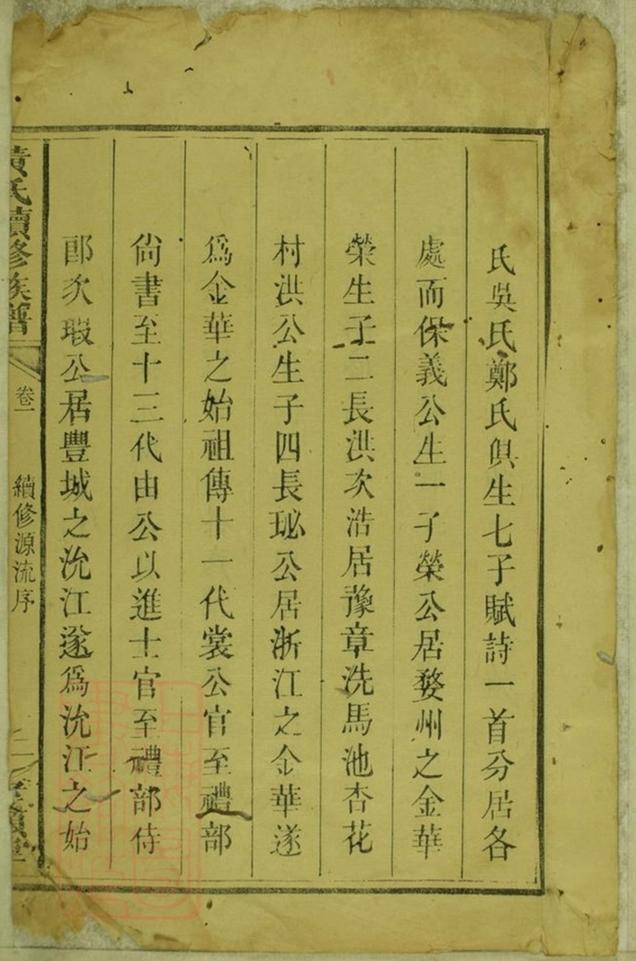 氏吳氏鄭氏俱生七子賦詩一首分居各
處而保義公生一子榮公居婺州之金華
榮生子二長洪次浩居豫章洗馬池杏花
村洪公生子四長珌公居浙江之金華遂
爲金華之始祖傳十一代裳公官至禮部
尙書至十三代由公以進士官至禮部侍
郎次瑕公居豐城之沇江遂爲沇江之始
黃氏續修族譜
卷一
續修源流序
二